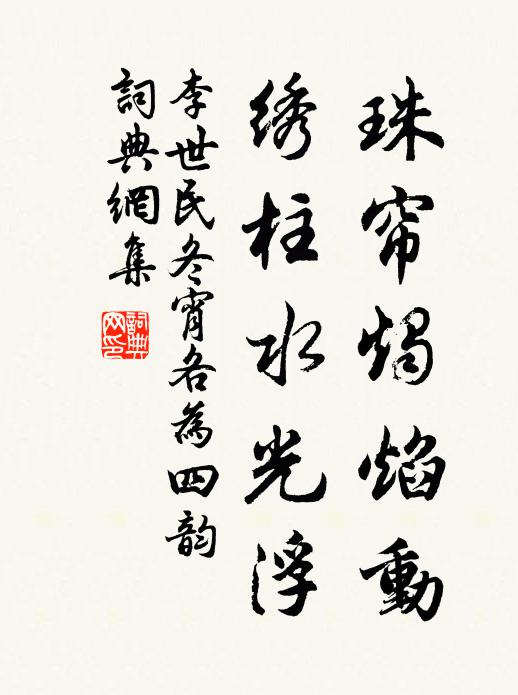 珠帘烛焰動
绣柱水光浮
李世民冬宵各為四韵
詞典網集
詞典网印